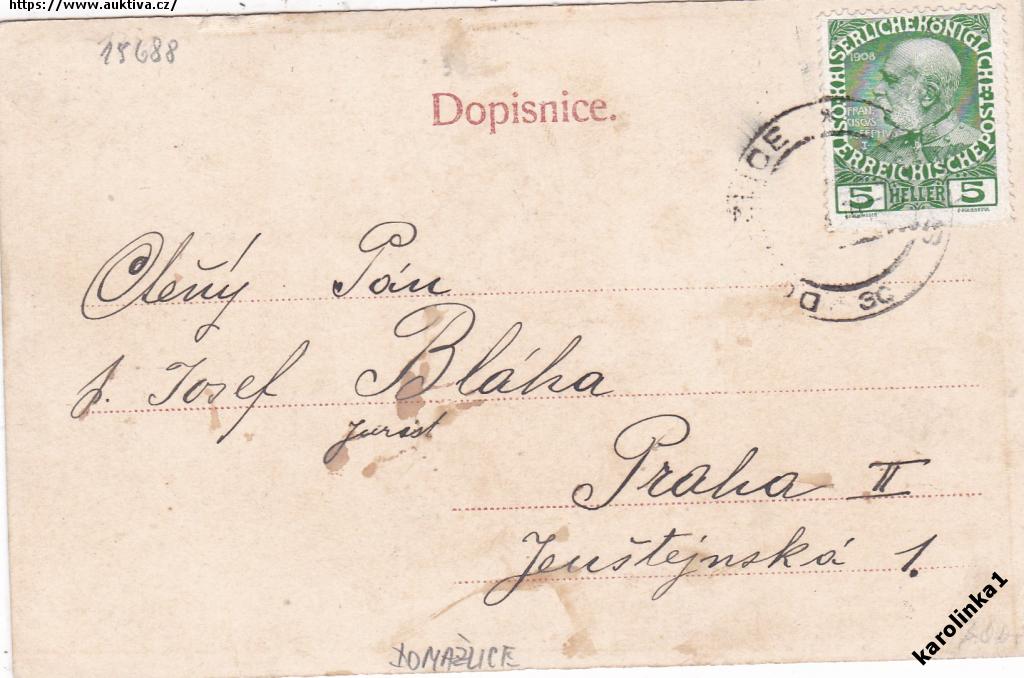 https://www.auktiva.cz/
15688
Dopisnice.
KAISERLICHE KÖNIGLICHE ÖSTERREICHISCHE POST
1908
FRAN
CISCVS
IOSEPHVS
I
5 HELLER 5
Ctěný Pán
p. Josef Bláha
jurist
Praha II
Jenštejnská 1.
DOMAŽLICE
karolinka1